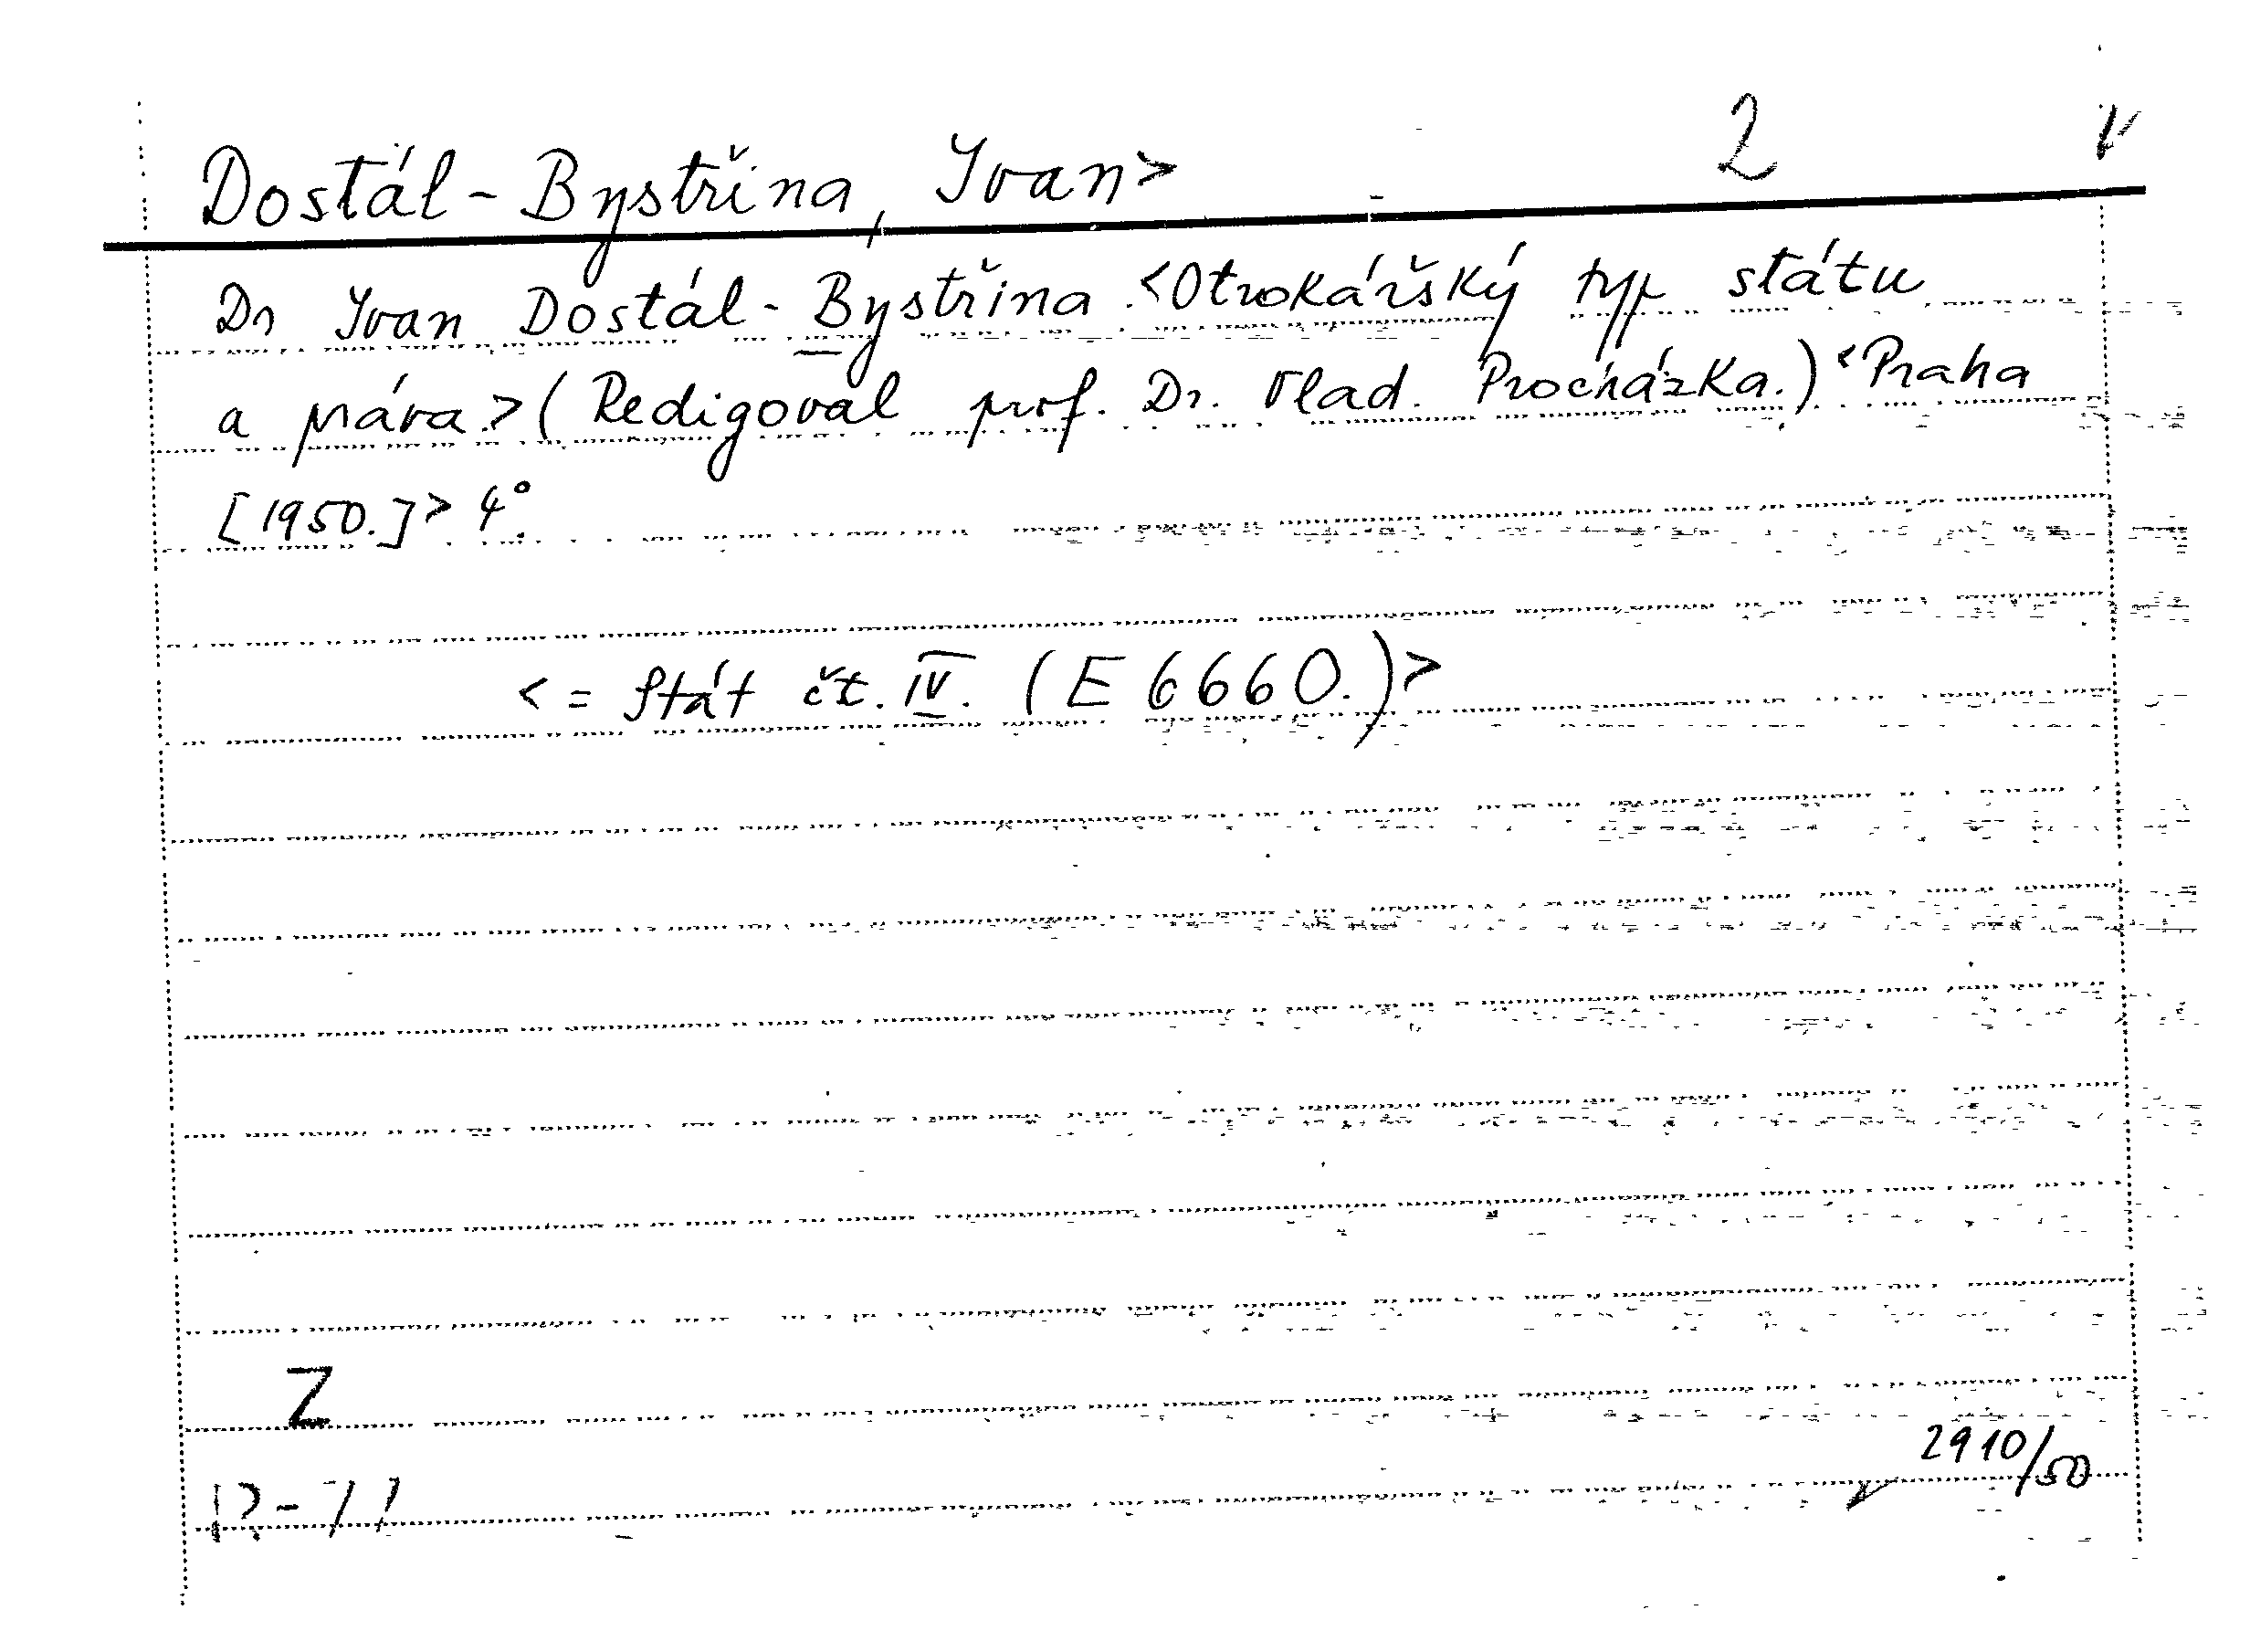 Dostál-Bystřina, Ivan> 2
Dr Ivan Dostál-Bystřina <Otrokářský typ státu
a práva.>(Redigoval prof. Dr. Vlad. Procházka.) <Praha
[1950.]> 4°.
<= Stát čt. IV. (E 6660.)>
Z
2910/50